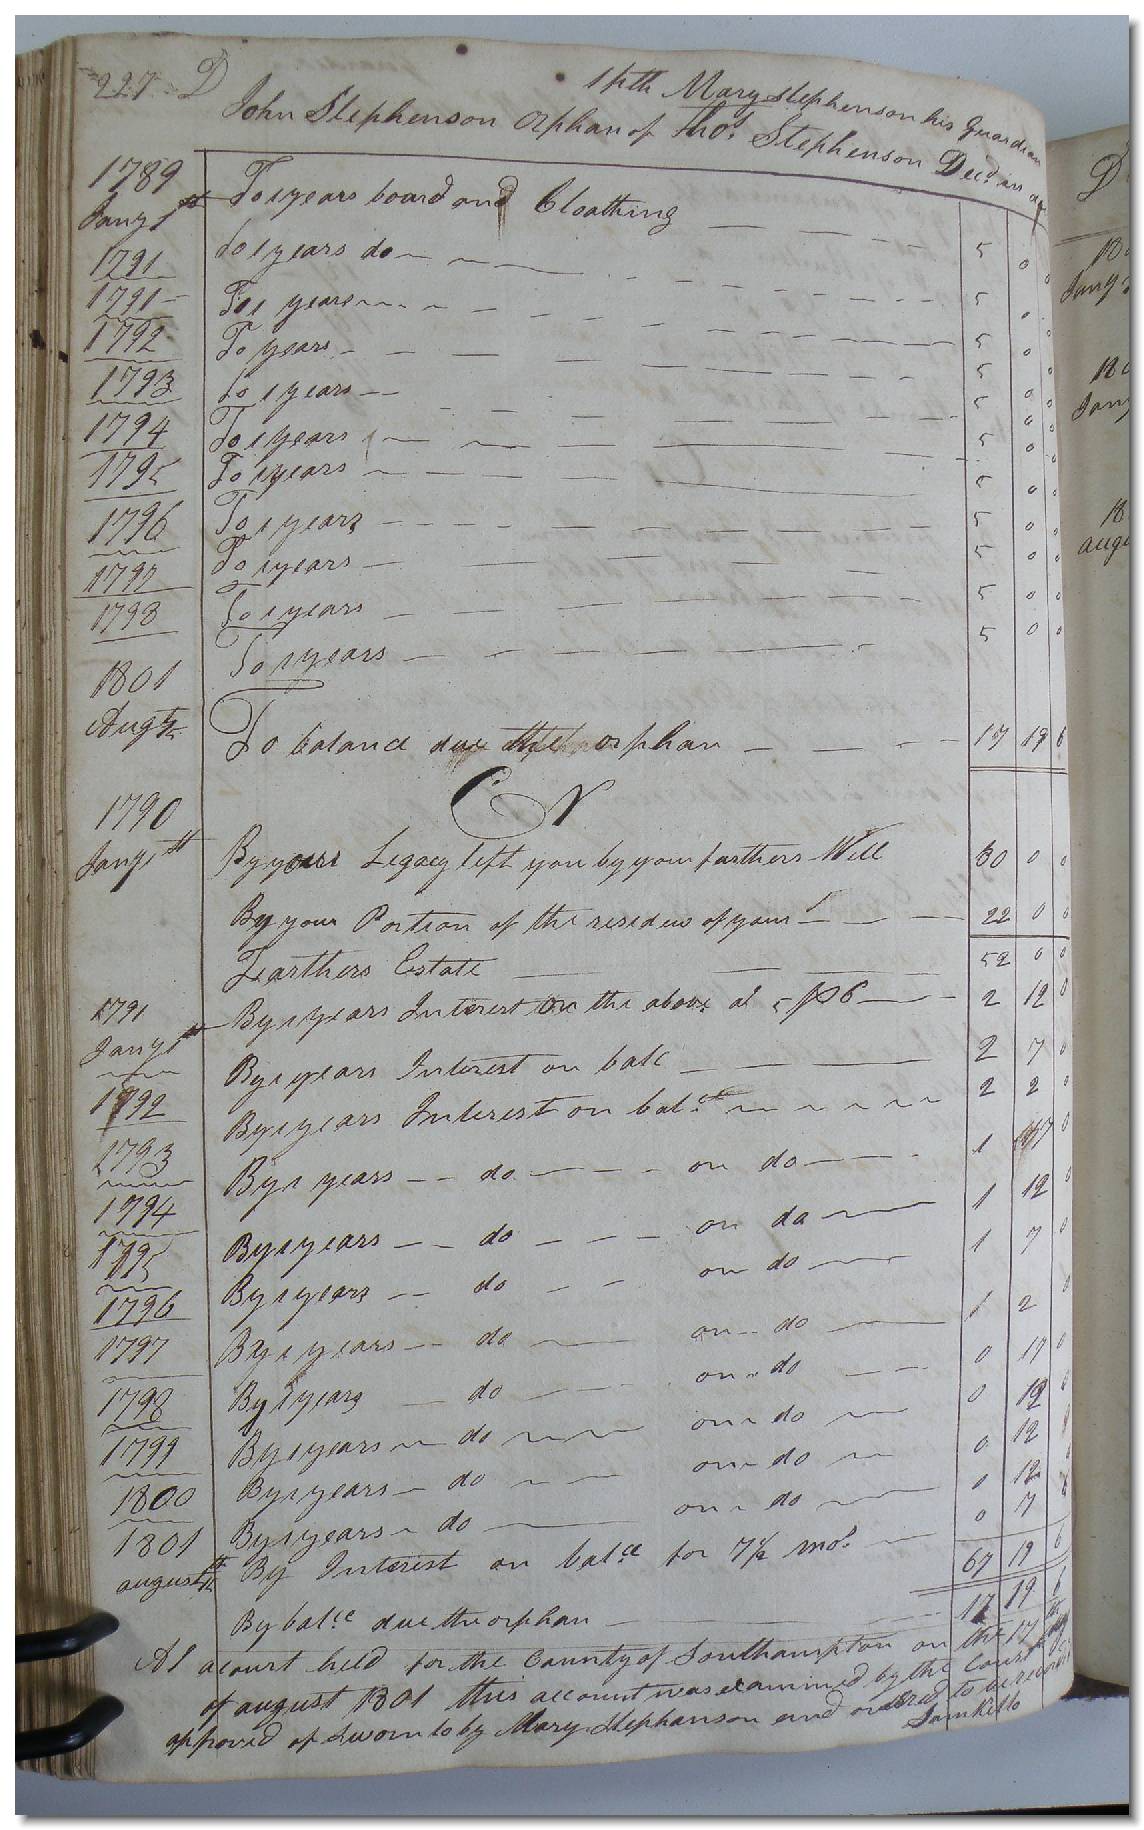 227 D
with Mary Stephenson his Guardian
John Stephenson Orphan of Thos Stephenson Decd in
1789
Jany 1st To 1 years board and Cloathing 5 0 0
1791 To 1 years do 5 0 0
1791 To 1 years 5 0 0
1792 To years 5 0 0
1793 To 1 years 5 0 0
1794 To 1 years 5 0 0
1795 To 1 years 5 0 0
1796 To 1 years 5 0 0
1797 To 1 years 5 0 0
1798 To 1 years 5 0 0
1801 To 1 years
Augt
To balance due the orphan 17 19 6
Cr
1790
Jany 1st By yours Legacy left you by your farthers Will 30 0 0
By your Portion of the residue of your 22 0 0
Farthers Estate 52 0 0
1791
Jany 1st By 1 years Interest on the above at 5 2 12 0
By 1 years Interest on bale 2 7 0
1792 By 1 years Interest on balce 2 2 0
1793 By 1 years do on do 1 17 0
1794 By 1 years do on do 1 12 0
1795 By 1 years do on do 1 7 0
1796 By 1 years do on do 1 2 0
1797 By 1 years do on do 0 17 0
1798 By 1 years do on do 0 12
1799 By 1 years do on do 0 12
1800 By 1 years do on do 0 12
1801
august By Interest on balce for 7½ mos 0 7 6
67 19 6
By balce due the orphan 17 19 6
At a court held for the County of Southampton on the 17th
of august 1801 this account was examined by the Court
approved of Sworn to by Mary Stephanson and ordered to be recorded
Saml Kello